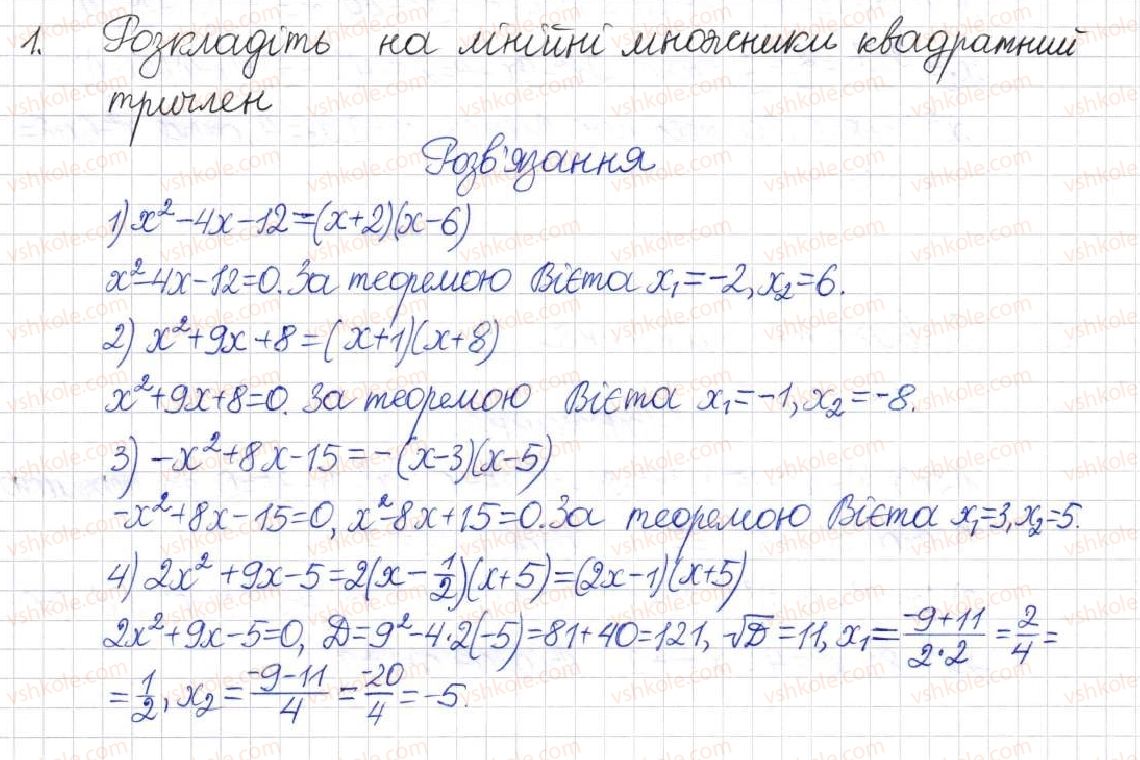 1. Розкладіть на лінійні множники квадратний
тричлен
Розв'язання
1) x² - 4x - 12 = (x+2)(x-6)
x² - 4x - 12 = 0. За теоремою Вієта x₁ = -2, x₂ = 6.
2) x² + 9x + 8 = (x+1)(x+8)
x² + 9x + 8 = 0. За теоремою Вієта x₁ = -1, x₂ = -8.
3) -x² + 8x - 15 = -(x-3)(x-5)
-x² + 8x - 15 = 0, x² - 8x + 15 = 0. За теоремою Вієта x₁ = 3, x₂ = 5.
4) 2x² + 9x - 5 = 2(x - 1/2)(x+5) = (2x-1)(x+5)
2x² + 9x - 5 = 0, D = 9² - 4·2(-5) = 81 + 40 = 121, √D = 11, x₁ = (-9+11)/(2·2) = 2/4 =
= 1/2, x₂ = (-9-11)/4 = -20/4 = -5.